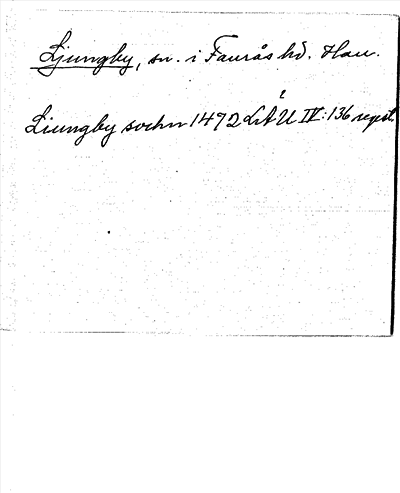 Ljungby, sn. i Faurås hd. Hall.
Liungby sochn 1472 LÅU IV: 136 regest.